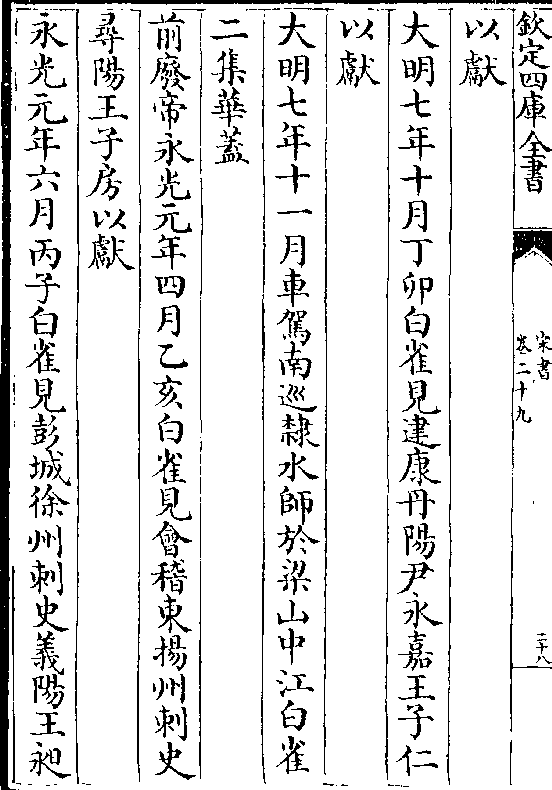 欽定四庫全書
宋書
卷二十九
二十八
以獻
大明七年十月丁卯白雀見建康丹陽尹永嘉王子仁
以獻
大明七年十一月車駕南巡隸水師於梁山中江白雀
二集華蓋
前廢帝永光元年四月乙亥白雀見會稽東揚州刺史
尋陽王子房以獻
永光元年六月丙子白雀見彭城徐州刺史義陽王昶